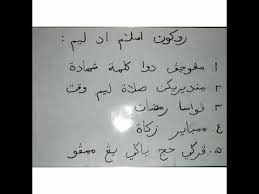 روكون اسلام اد ليم :
١. مڠوچڤ دوا كلمة شهادة
٢. منديريكن صلاة ليم وقت
٣. ڤواسا رمضان
٤. ممباير زكاة
٥. ڤرڬي حج باڬي يڠ ممڤو